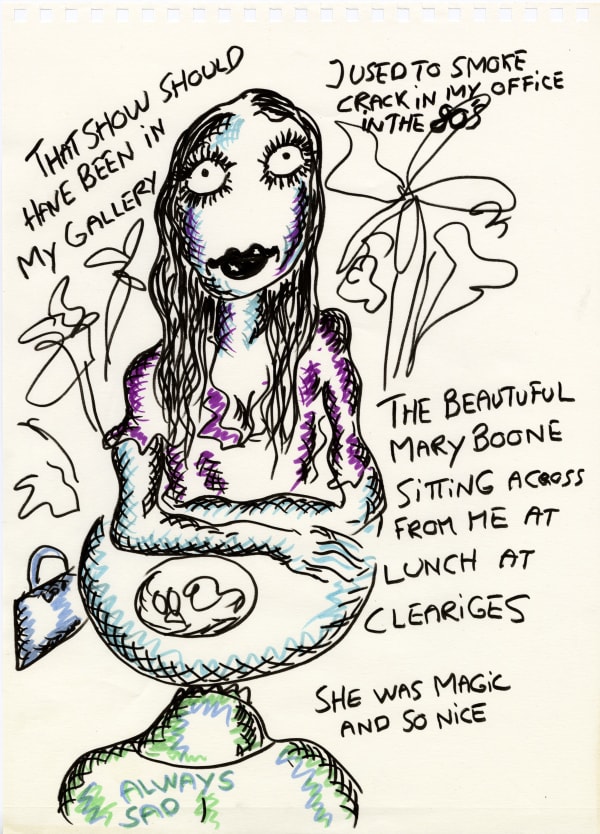 THAT SHOW SHOULD
HAVE BEEN IN
MY GALLERY
I USED TO SMOKE
CRACK IN MY OFFICE
IN THE 80S
THE BEAUTUFUL
MARY BOONE
SITTING ACROSS
FROM ME AT
LUNCH AT
CLEARIGES
SHE WAS MAGIC
AND SO NICE
ALWAYS
SAD